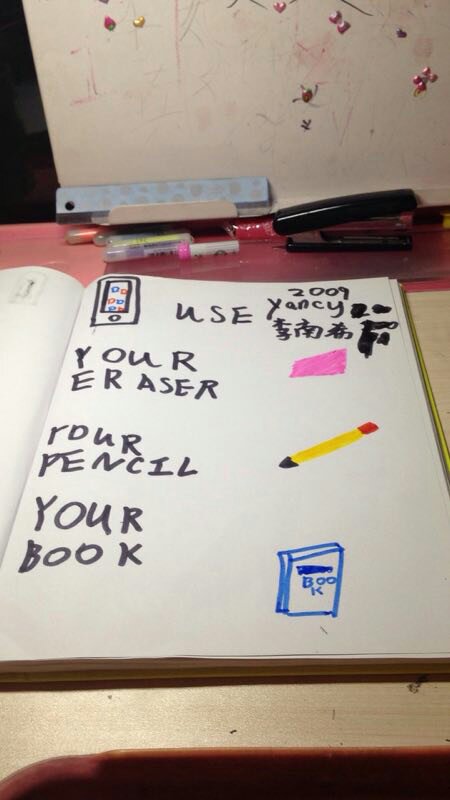 2009
USE Yancy
李南希
YOUR
ERASER
YOUR
PENCIL
YOUR
BOOK
BOO
K